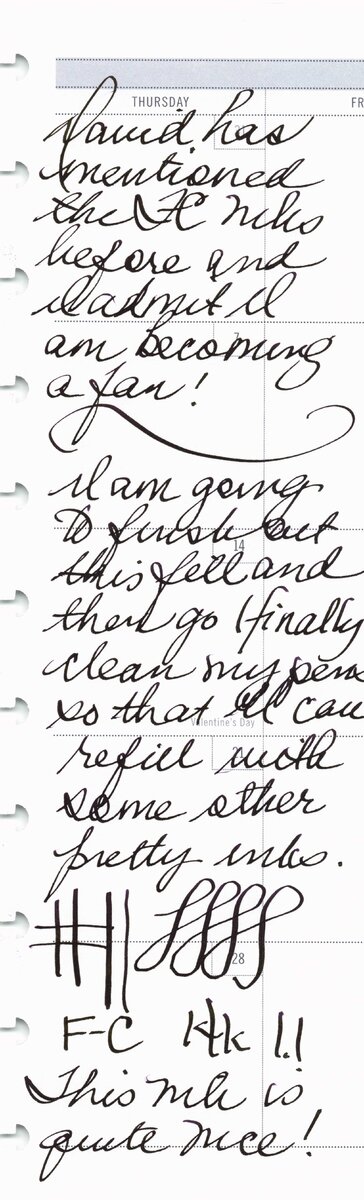 THURSDAY FR
David has
mentioned
the FC inks
before and
I admit I
am becoming
a fan!
I am going
to finish out
14
this fill and
then go (finally
clean my pens
so that I can
Valentine's Day
refill with
some other
pretty inks.
28
F-C
This ink is
quite nice!